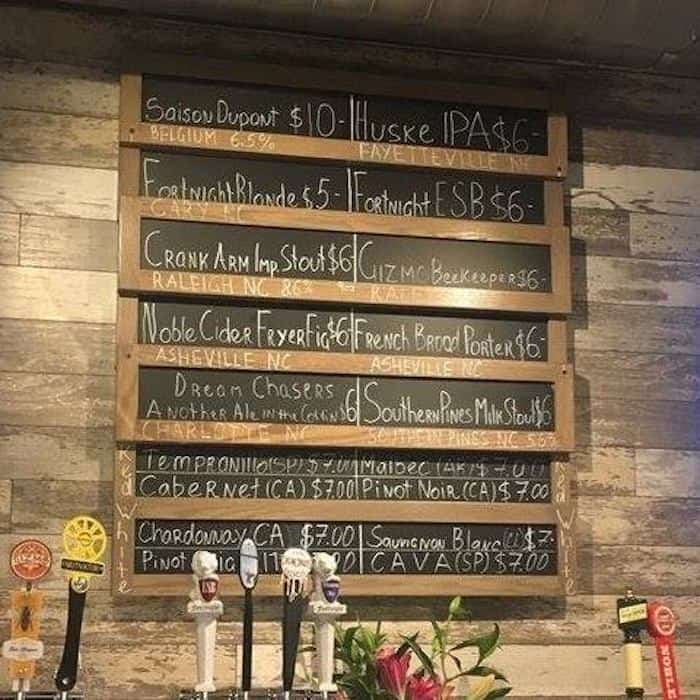 Saison Dupont $10-
BELGIUM 6.5%
Huske IPA $6-
FAYETTEVILLE NC
Fortnight Blonde $5-
CARY NC
Fortnight ESB $6-
Crank Arm Imp Stout $6
RALEIGH NC
Gizmo Beekeeper $6-
Noble Cider Fryer Fig $6
ASHEVILLE NC
French Broad Porter $6-
ASHEVILLE NC
Dream Chasers
Another Ale in the Coffin $6
CHARLOTTE NC
Southern Pines Milk Stout $6
SOUTHERN PINES NC
Red
Tempranillo (SP) $7.00
Malbec (AR) $7.00
Cabernet (CA) $7.00
Pinot Noir (CA) $7.00
Red
White
Chardonnay CA $7.00
Sauvignon Blanc $7-
Pinot
CAVA (SP) $7.00
White